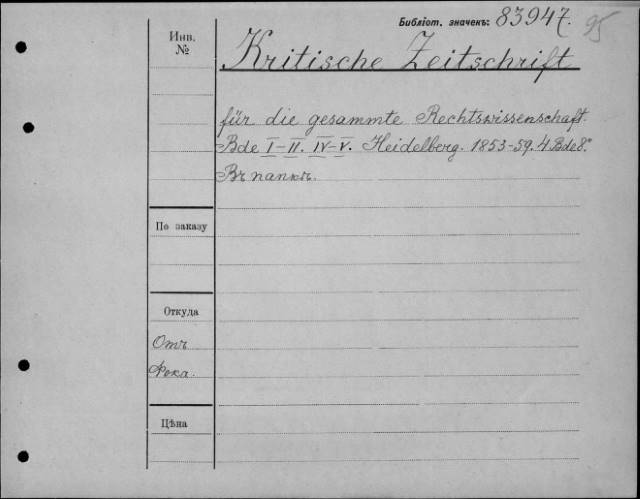 Библіот. значекъ: 83947.
95
Инв.
№
Kritische Zeitschrift
für die gesammte Rechtswissenschaft.
Bde I–II. IV–V. Heidelberg. 1853–59. 4 Bde 8°
Въ папкѣ.
По заказу
Откуда
Отъ
Фока.
Цѣна